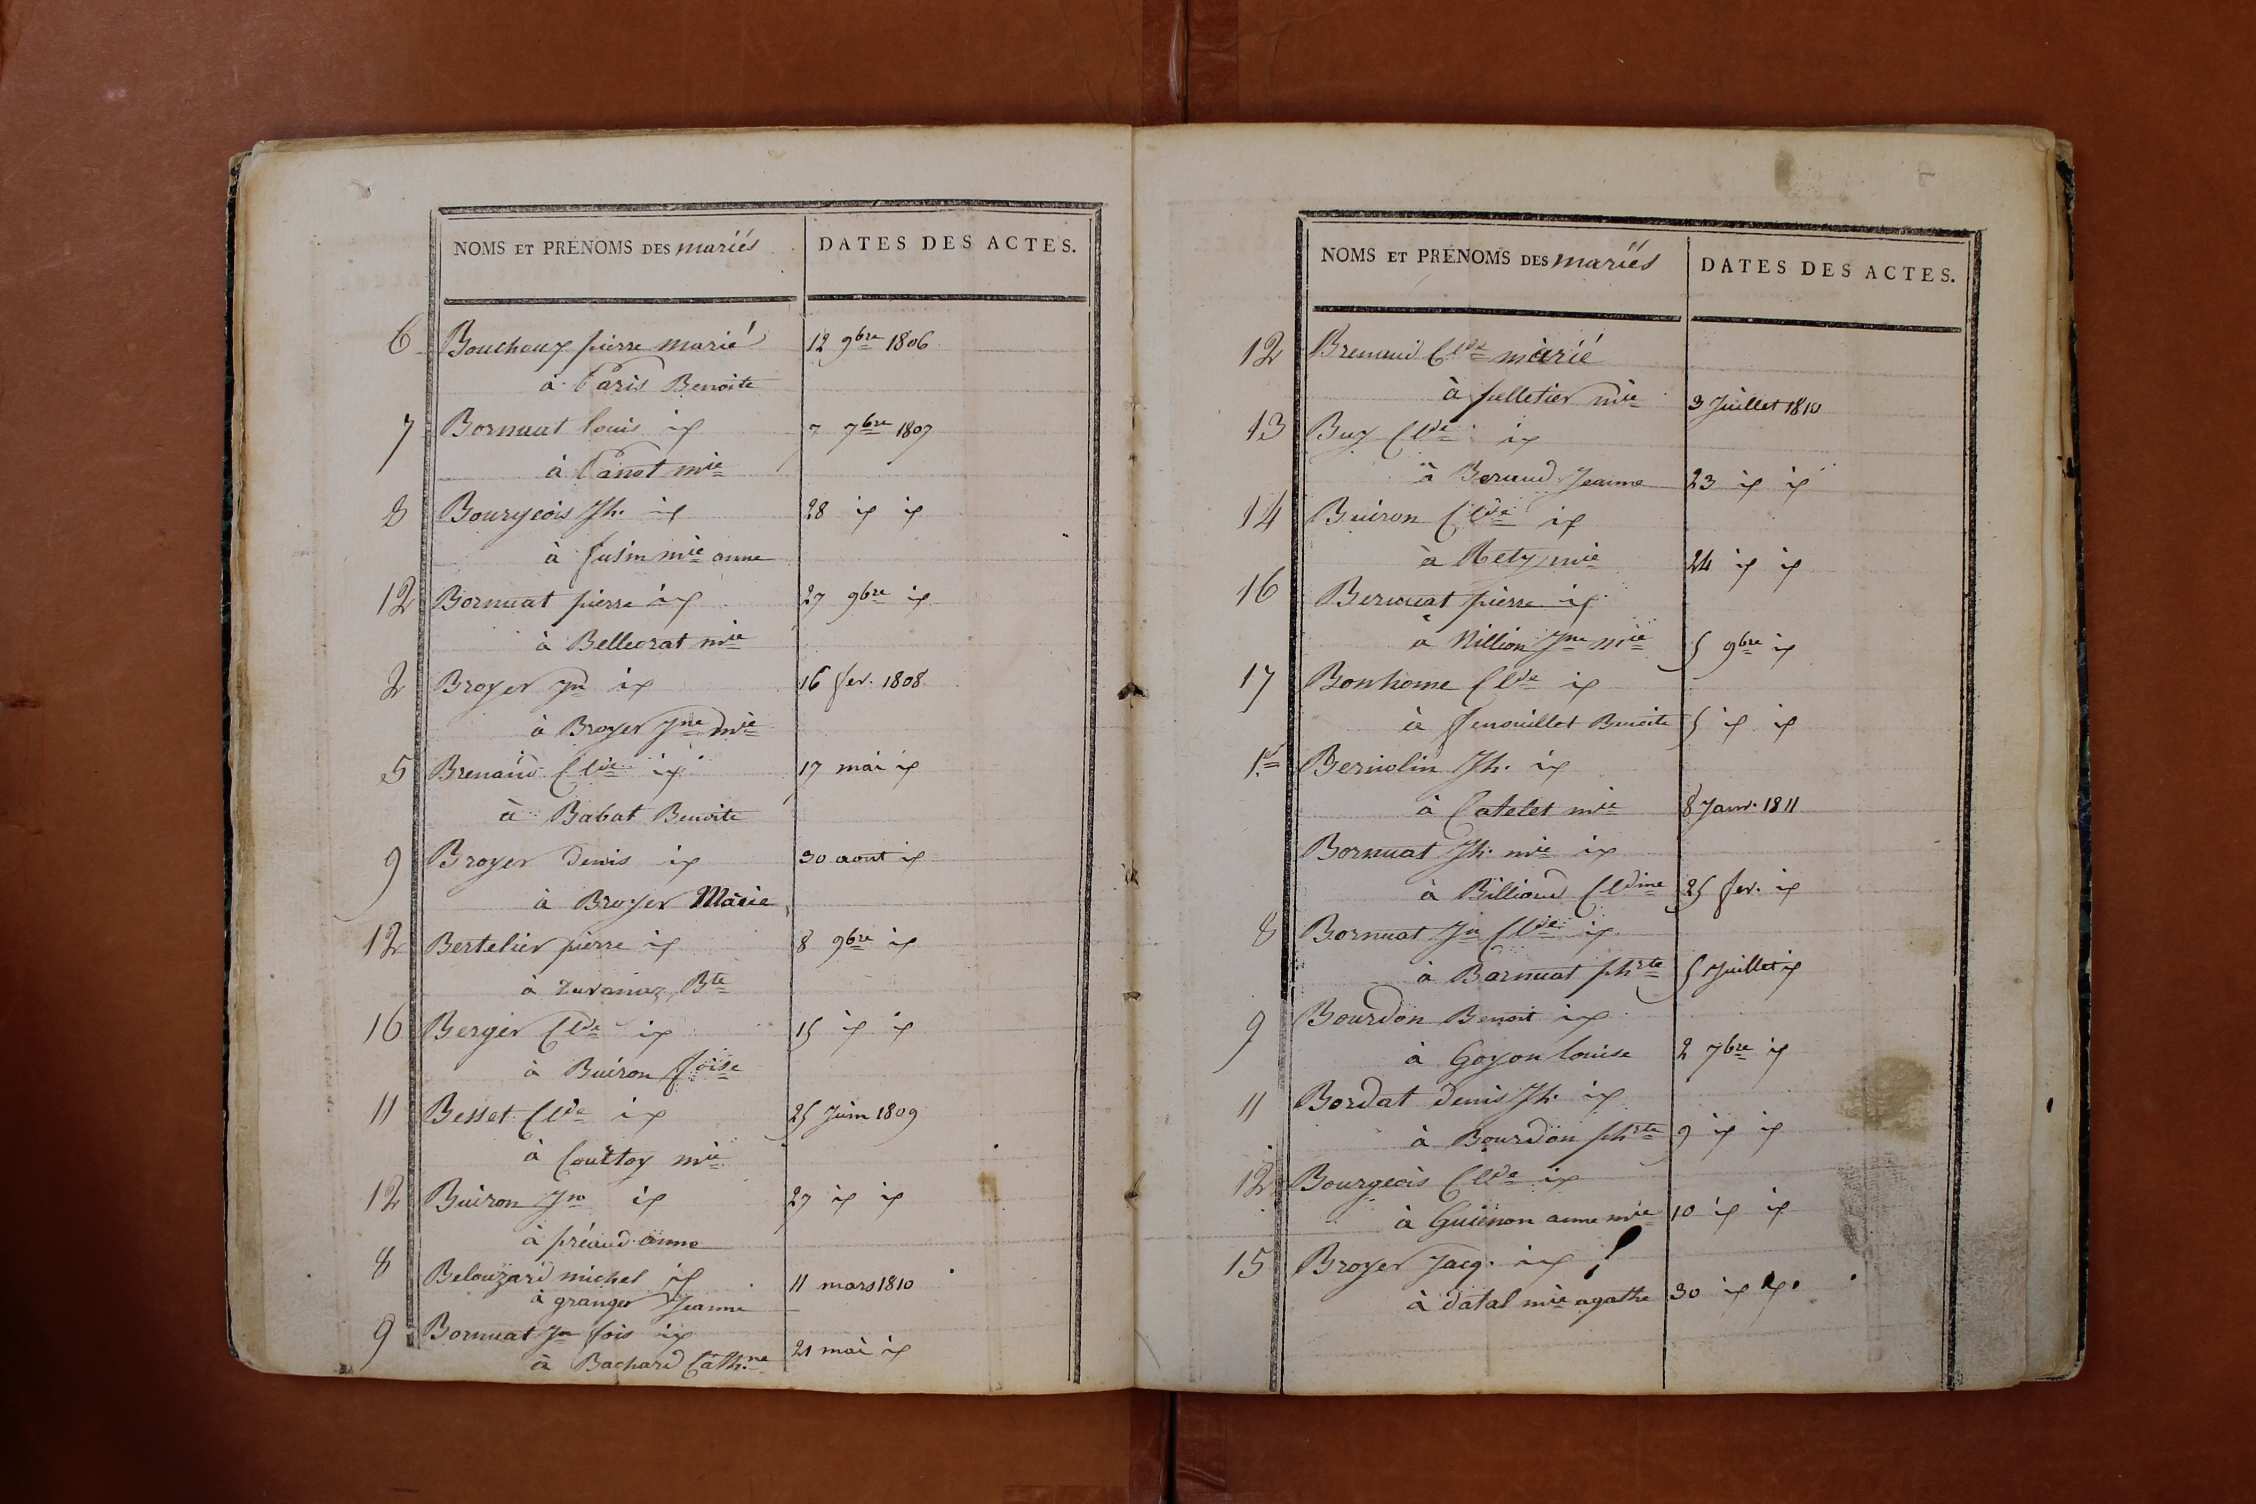 NOMS ET PRÉNOMS DES mariés
DATES DES ACTES.
6 Bouchoux pierre marié 12 9bre 1806
à Paris Benoite
7 Bornuat louis id 7 7bre 1807
à Panot mie
8 Bourgeois Jh. id 28 id id
à fusin mie anne
12 Bornuat pierre id 27 9bre id
à Bellecrat mie
2 Broyer Jn id 16 fev. 1808
à Broyer Jne mie
5 Brenaud Clde id 17 mai id
à Babat Benoite
9 Broyer denis id 30 aout id
à Broyer Marie
12 Bertelier pierre id 8 9bre id
à Bte
16 Berger Clde id 15 id id
à Buiron foise
11 Besset Clde id 25 Juin 1809
à Courtoy mie
12 Buiron Jn id 27 id id
à préaud anne
8 Belouzard michel id 11 mars 1810
à granger Jeanne
9 Bornuat Jn fois id 21 mai id
à Bachard Cath.ne
NOMS ET PRÉNOMS DES mariés
DATES DES ACTES.
12 Brenaud Clde marié
à pelletier mie 3 Juillet 1810
13 Buy Clde id
à Beraud Jeanne 23 id id
14 Buiron Clde id
à Rety mie 24 id id
16 Bernuat pierre id
à Nillion Jne mie 5 9bre id
17 Bonhome Clde id
à fenouillet Benoite 5 id id
1er Bernolin Jh. id
à Catelet mie 8 Janv. 1811
Bornuat Jh. mie id
à Billioud Cldine 25 fev. id
8 Bornuat Jn Clde id
à Barnuat phrte 5 Juillet id
9 Bourdon Benoit id
à Goyon louise 2 7bre id
11 Bordat denis Jh. id
à Bourdon phrte 9 id id
12 Bourgeois Clde id
à Guienon anne mie 10 id id
15 Broyer Jacq. id
à datal mie agathe 30 id id